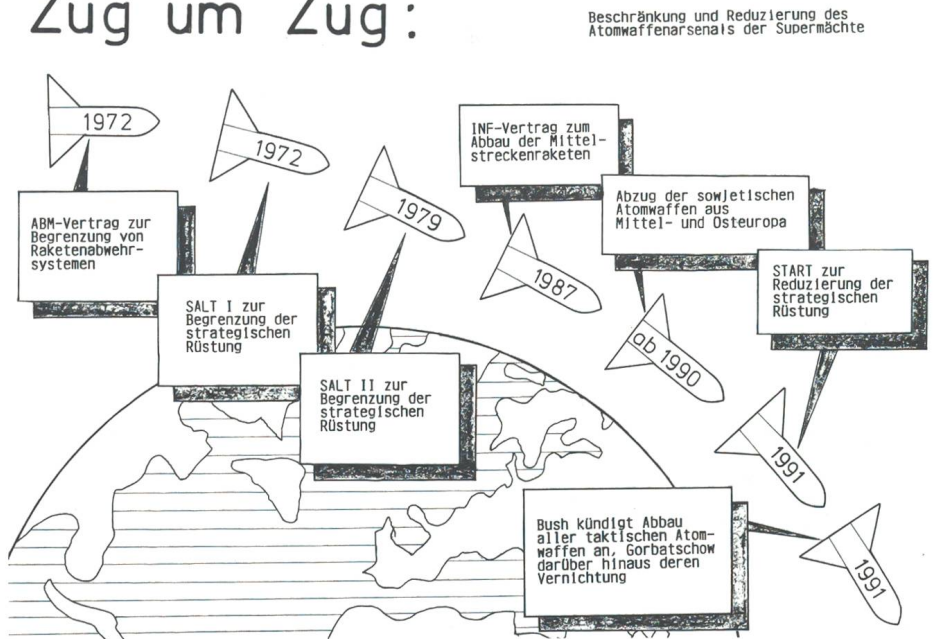 Zug um Zug:
Beschränkung und Reduzierung des
Atomwaffenarsenals der Supermächte
1972
ABM-Vertrag zur
Begrenzung von
Raketenabwehr-
systemen
1972
SALT I zur
Begrenzung der
strategischen
Rüstung
1979
SALT II zur
Begrenzung der
strategischen
Rüstung
INF-Vertrag zum
Abbau der Mittel-
streckenraketen
1987
Abzug der sowjetischen
Atomwaffen aus
Mittel- und Osteuropa
ab 1990
START zur
Reduzierung der
strategischen
Rüstung
1991
Bush kündigt Abbau
aller taktischen Atom-
waffen an, Gorbatschow
darüber hinaus deren
Vernichtung
1991